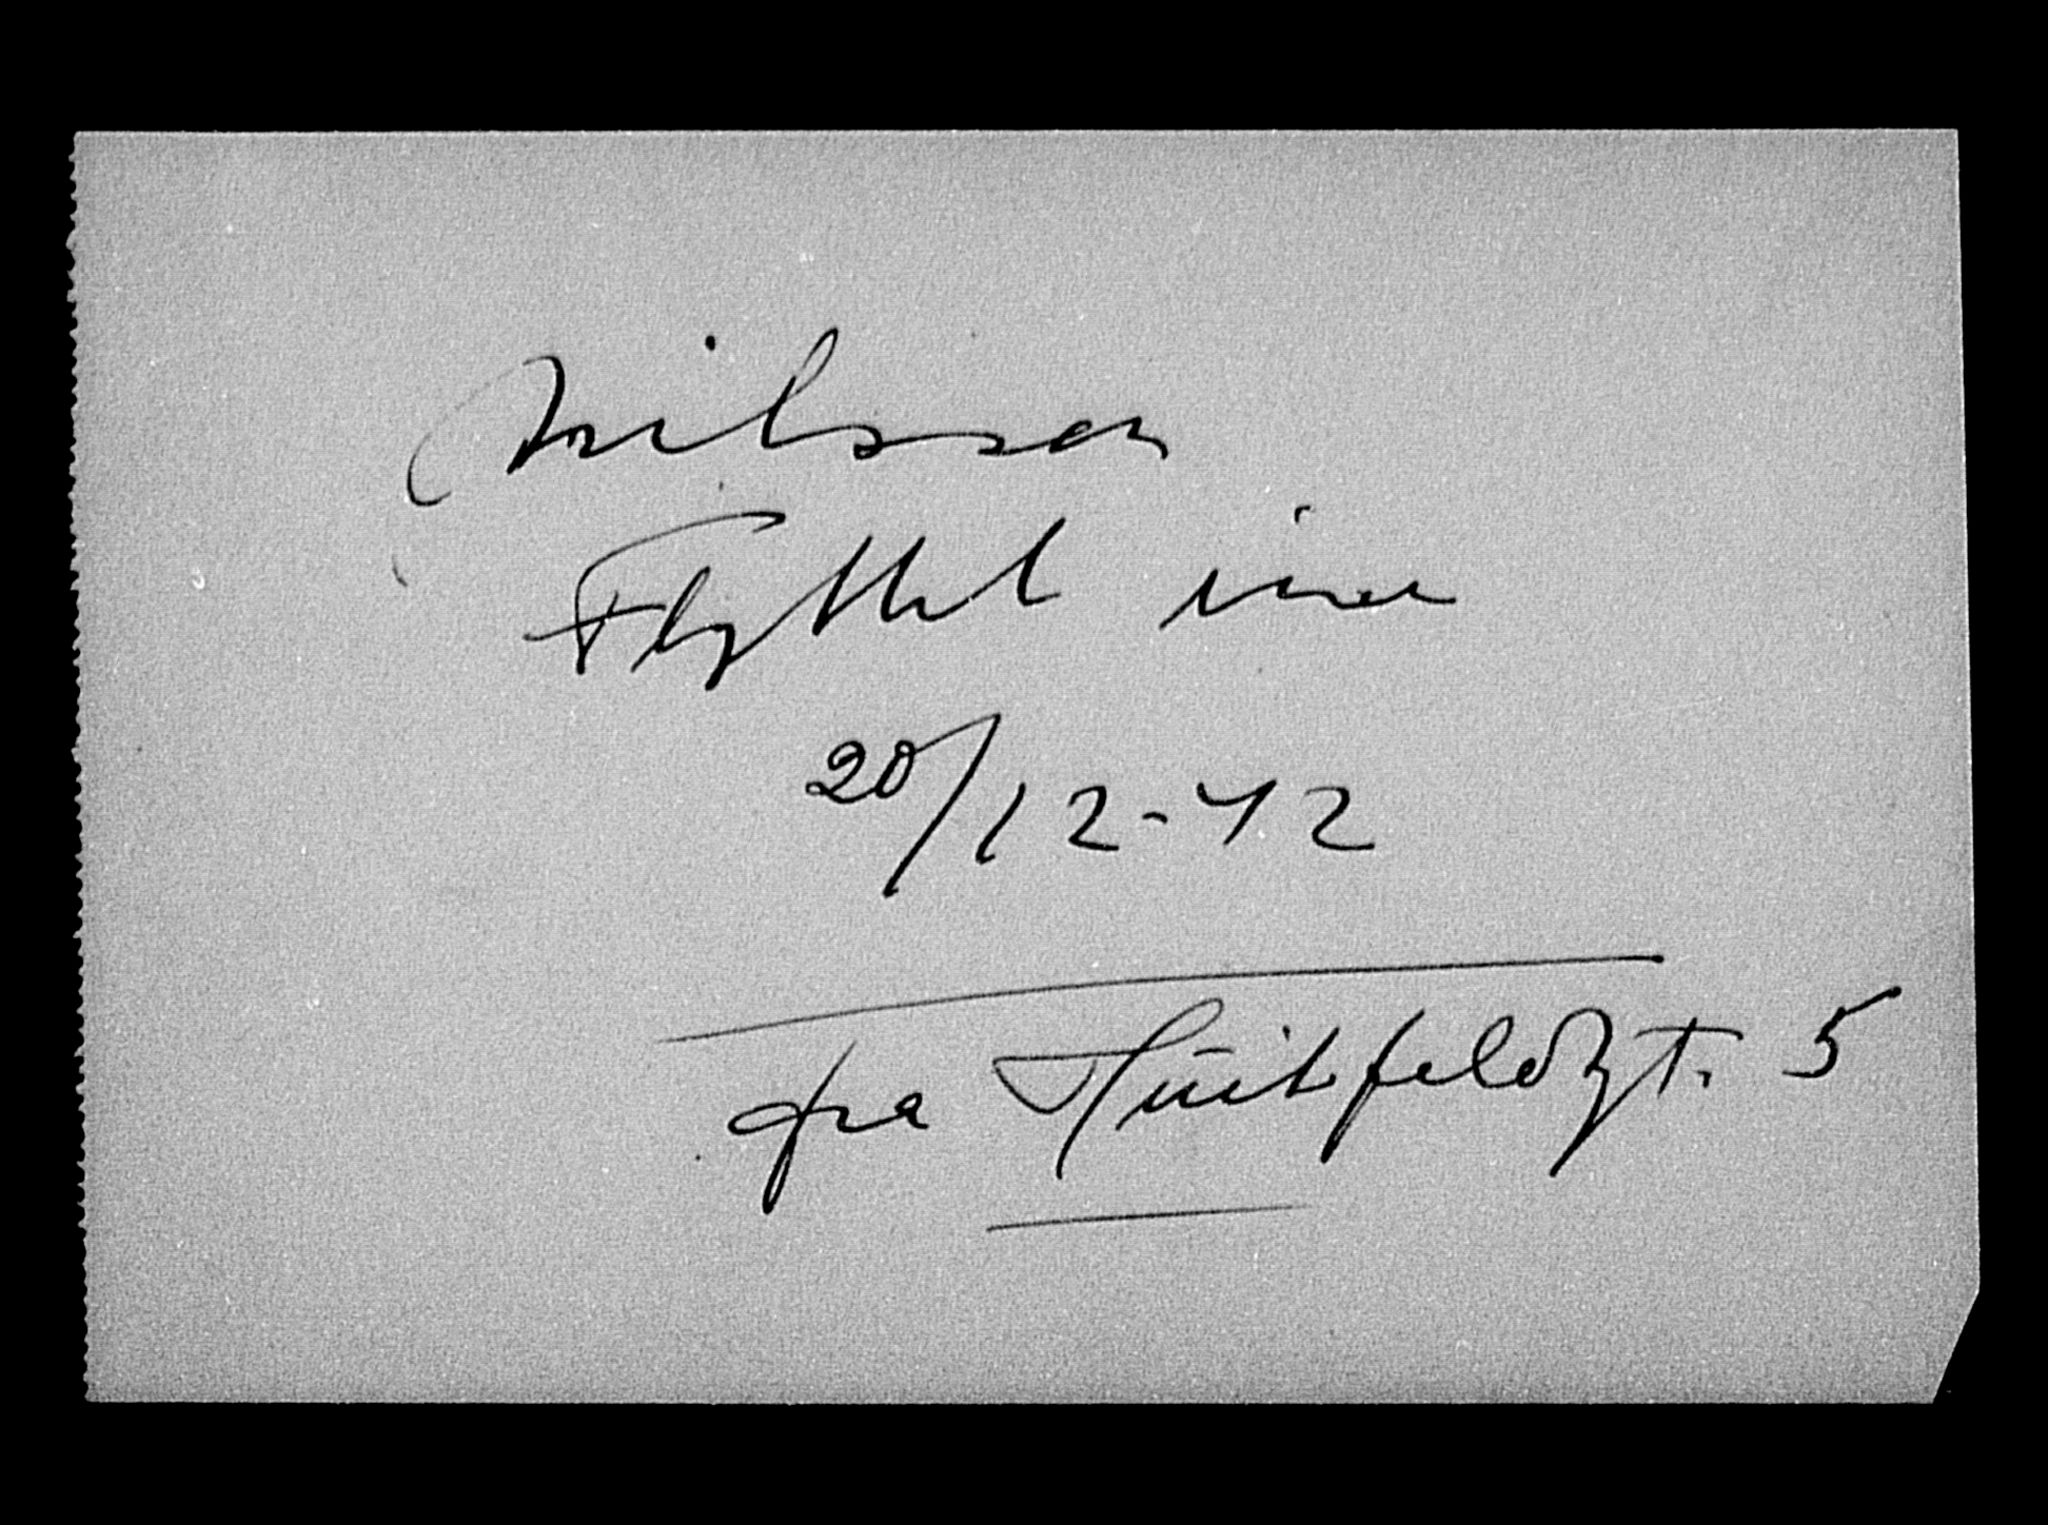 Nilssen
Flyttet inn
20/12-42
fra Huitfeldtgt. 5